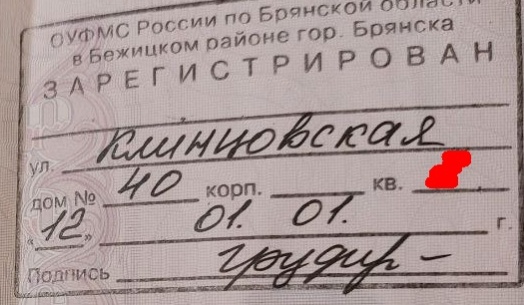 ОУФМС России по Брянской области
в Бежицком районе гор. Брянска
ЗАРЕГИСТРИРОВАН
ул. Клинцовская
дом № 40 корп. кв.
«12» 01. 01. г.
Подпись